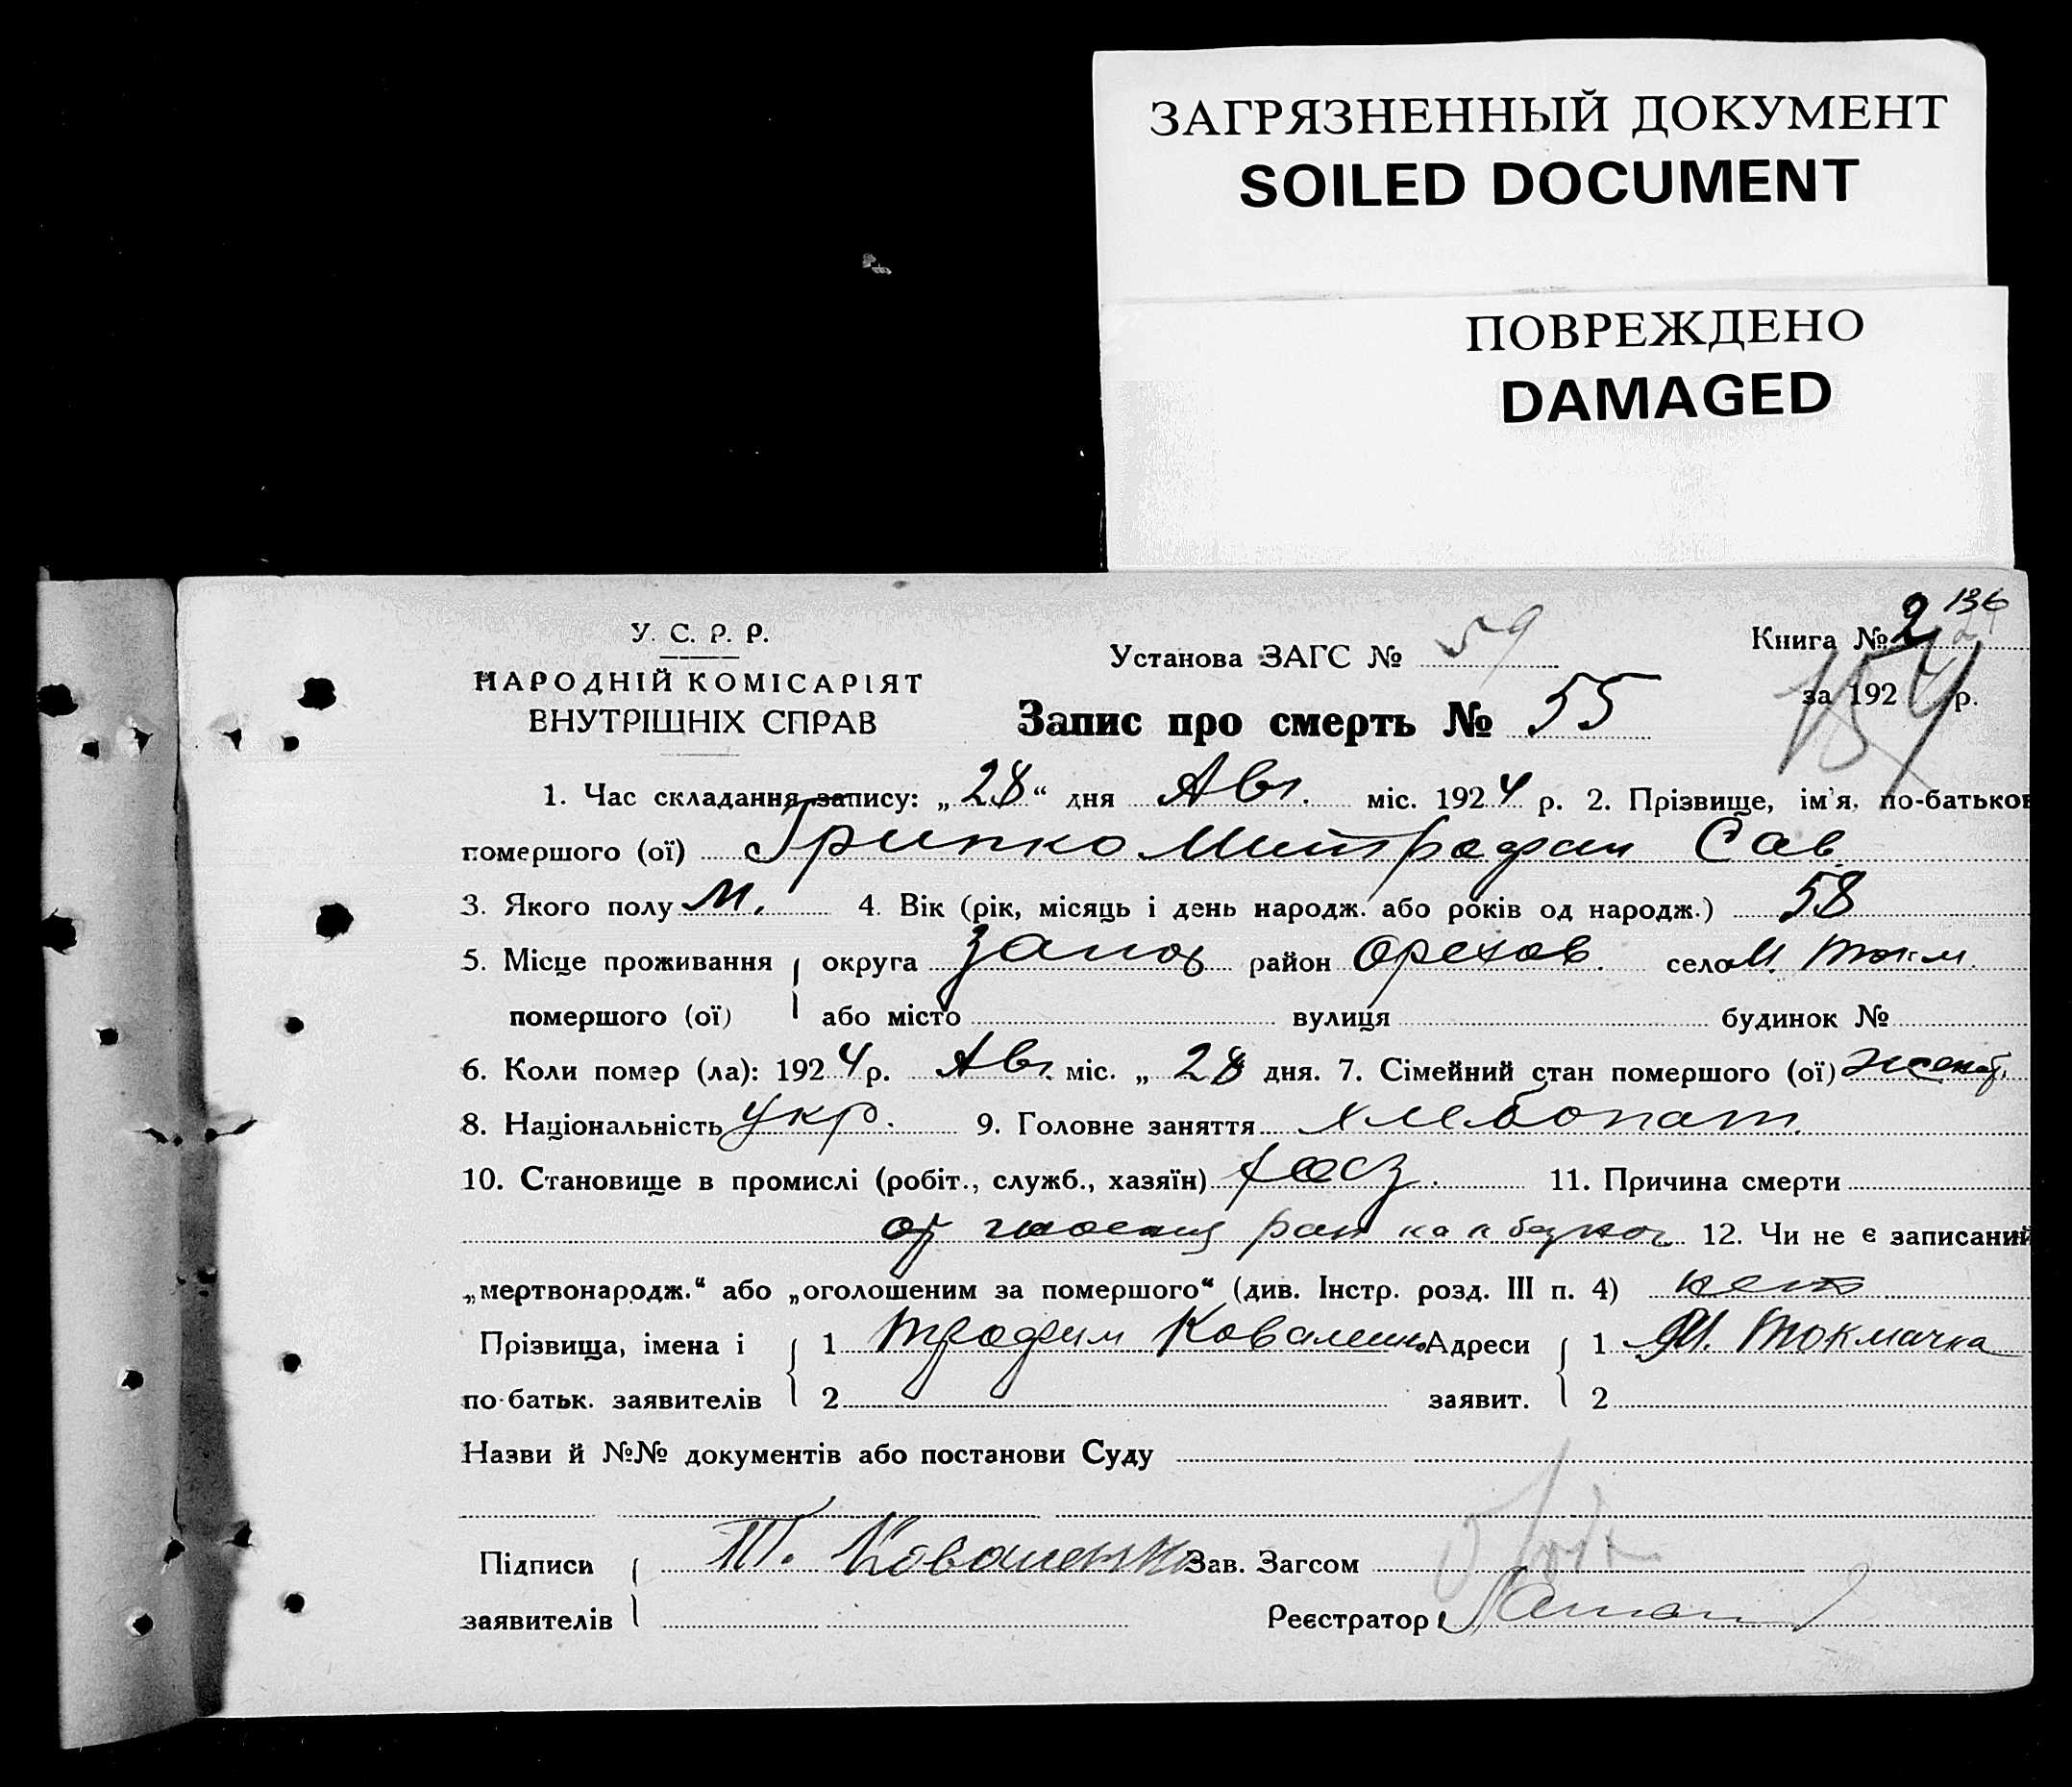 ЗАГРЯЗНЕННЫЙ ДОКУМЕНТ
SOILED DOCUMENT
ПОВРЕЖДЕНО
DAMAGED
136
У. С. Р. Р.
НАРОДНІЙ КОМІСАРІЯТ
ВНУТРІШНІХ СПРАВ
Установа ЗАГС № 59
Книга № 2
за 1924 р.
154
Запис про смерть № 55
1. Час складання запису: „28“ дня Авг. міс. 1924 р. 2. Прізвище, ім'я, по-батьков
помершого (ої) Грипко Митрофан Сав.
3. Якого полу М. 4. Вік (рік, місяць і день народж. або років од народж.) 58
5. Місце проживання округа Запор район Орехов. село М. Токм.
помершого (ої) або місто вулиця будинок №
6. Коли помер (ла): 1924 р. Авг. міс. „28 дня. 7. Сімейний стан помершого (ої) женат.
8. Національність Укр. 9. Головне заняття хлебопаш.
10. Становище в промислі (робіт., служб., хазяїн) хозя. 11. Причина смерти
от ран на 12. Чи не є записаний
„мертвонародж.“ або „оголошеним за помершого“ (див. Інстр. розд. III п. 4) нет
Прізвища, імена і 1 Трофим Коваленко Адреси 1 М. Токмачка
по-батьк. заявителів 2 заявит. 2
Назви й №№ документів або постанови Суду
Підписи Т. Коваленко Зав. Загсом
заявителів Реєстратор